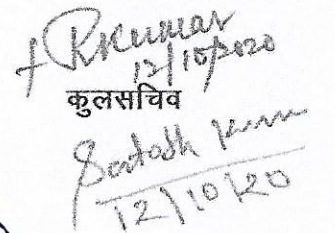 RKumar
12/10/2020
कुलसचिव
Santosh Kumar
12/10/20